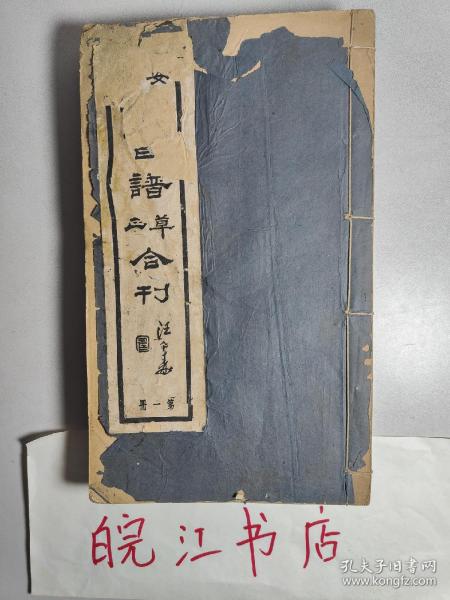 女
譜
草
合刊
第一册
皖江书店
孔夫子旧书网
www.kongfz.com